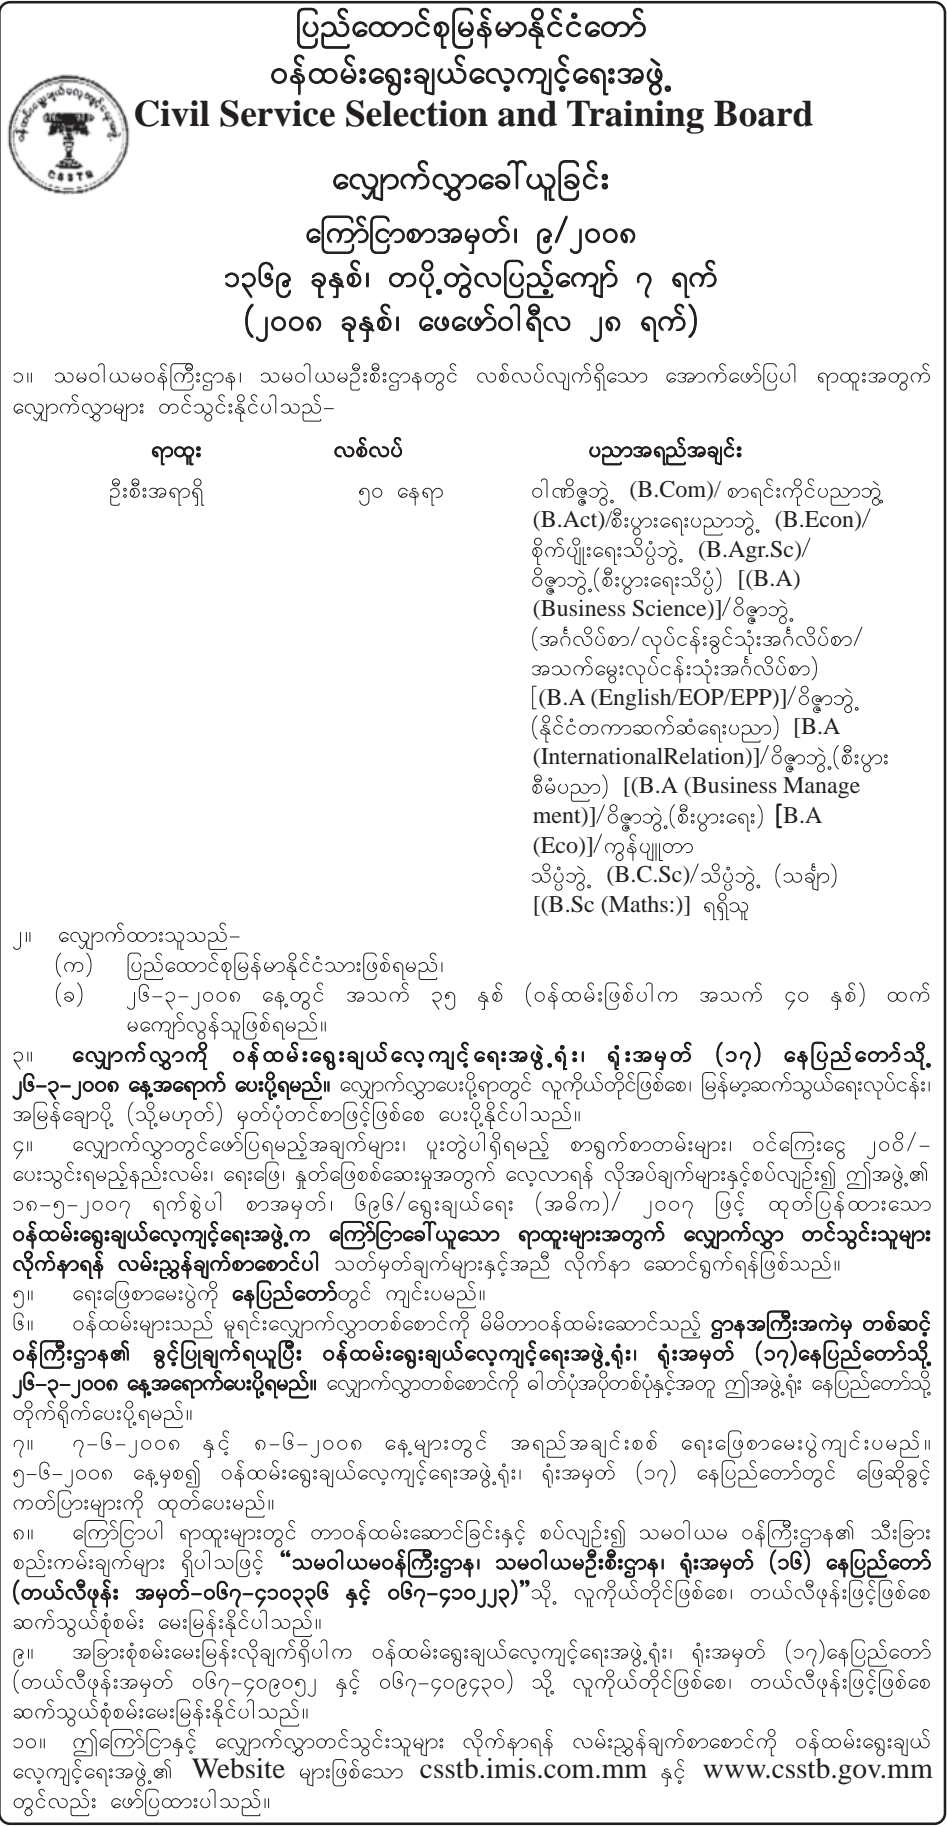 ပြည်ထောင်စုမြန်မာနိုင်ငံတော်
ဝန်ထမ်းရွေးချယ်လေ့ကျင့်ရေးအဖွဲ့
Civil Service Selection and Training Board
CSSTB
လျှောက်လွှာခေါ်ယူခြင်း
ကြော်ငြာစာအမှတ်၊ ၉/၂၀၀၈
၁၃၆၉ ခုနှစ်၊ တပို့တွဲလပြည့်ကျော် ၇ ရက်
(၂၀၀၈ ခုနှစ်၊ ဖေဖော်ဝါရီလ ၂၈ ရက်)
၁။ သမဝါယမဝန်ကြီးဌာန၊ သမဝါယမဦးစီးဌာနတွင် လစ်လပ်လျက်ရှိသော အောက်ဖော်ပြပါ ရာထူးအတွက်
လျှောက်လွှာများ တင်သွင်းနိုင်ပါသည်–
ရာထူး လစ်လပ် ပညာအရည်အချင်း
ဦးစီးအရာရှိ ၅၀ နေရာ ဝါဏိဇ္ဇဘွဲ့ (B.Com)/ စာရင်းကိုင်ပညာဘွဲ့
(B.Act)/စီးပွားရေးပညာဘွဲ့ (B.Econ)/
စိုက်ပျိုးရေးသိပ္ပံဘွဲ့ (B.Agr.Sc)/
ဝိဇ္ဇာဘွဲ့(စီးပွားရေးသိပ္ပံ) [(B.A)
(Business Science)]/ဝိဇ္ဇာဘွဲ့
(အင်္ဂလိပ်စာ/လုပ်ငန်းခွင်သုံးအင်္ဂလိပ်စာ/
အသက်မွေးလုပ်ငန်းသုံးအင်္ဂလိပ်စာ)
[(B.A (English/EOP/EPP)]/ဝိဇ္ဇာဘွဲ့
(နိုင်ငံတကာဆက်ဆံရေးပညာ) [B.A
(InternationalRelation)]/ဝိဇ္ဇာဘွဲ့(စီးပွား
စီမံပညာ) [(B.A (Business Manage
ment)]/ဝိဇ္ဇာဘွဲ့(စီးပွားရေး) [B.A
(Eco)]/ကွန်ပျူတာ
သိပ္ပံဘွဲ့ (B.C.Sc)/သိပ္ပံဘွဲ့ (သင်္ချာ)
[(B.Sc (Maths:)] ရရှိသူ
၂။ လျှောက်ထားသူသည်–
(က) ပြည်ထောင်စုမြန်မာနိုင်ငံသားဖြစ်ရမည်၊
(ခ) ၂၆–၃–၂၀၀၈ နေ့တွင် အသက် ၃၅ နှစ် (ဝန်ထမ်းဖြစ်ပါက အသက် ၄၀ နှစ်) ထက်
မကျော်လွန်သူဖြစ်ရမည်။
၃။ လျှောက်လွှာကို ဝန်ထမ်းရွေးချယ်လေ့ကျင့်ရေးအဖွဲ့ရုံး၊ ရုံးအမှတ် (၁၇) နေပြည်တော်သို့
၂၆–၃–၂၀၀၈ နေ့အရောက် ပေးပို့ရမည်။ လျှောက်လွှာပေးပို့ရာတွင် လူကိုယ်တိုင်ဖြစ်စေ၊ မြန်မာ့ဆက်သွယ်ရေးလုပ်ငန်း၊
အမြန်ချောပို့ (သို့မဟုတ်) မှတ်ပုံတင်စာဖြင့်ဖြစ်စေ ပေးပို့နိုင်ပါသည်။
၄။ လျှောက်လွှာတွင်ဖော်ပြရမည့်အချက်များ၊ ပူးတွဲပါရှိရမည့် စာရွက်စာတမ်းများ၊ ဝင်ကြေးငွေ ၂၀၀ိ/–
ပေးသွင်းရမည့်နည်းလမ်း၊ ရေးဖြေ၊ နှုတ်ဖြေစစ်ဆေးမှုအတွက် လေ့လာရန် လိုအပ်ချက်များနှင့်စပ်လျဉ်း၍ ဤအဖွဲ့၏
၁၈–၅–၂၀၀၇ ရက်စွဲပါ စာအမှတ်၊ ၆၉၆/ရွေးချယ်ရေး (အဓိက)/ ၂၀၀၇ ဖြင့် ထုတ်ပြန်ထားသော
ဝန်ထမ်းရွေးချယ်လေ့ကျင့်ရေးအဖွဲ့က ကြော်ငြာခေါ်ယူသော ရာထူးများအတွက် လျှောက်လွှာ တင်သွင်းသူများ
လိုက်နာရန် လမ်းညွှန်ချက်စာစောင်ပါ သတ်မှတ်ချက်များနှင့်အညီ လိုက်နာ ဆောင်ရွက်ရန်ဖြစ်သည်။
၅။ ရေးဖြေစာမေးပွဲကို နေပြည်တော်တွင် ကျင်းပမည်။
၆။ ဝန်ထမ်းများသည် မူရင်းလျှောက်လွှာတစ်စောင်ကို မိမိတာဝန်ထမ်းဆောင်သည့် ဌာနအကြီးအကဲမှ တစ်ဆင့်
ဝန်ကြီးဌာန၏ ခွင့်ပြုချက်ရယူပြီး ဝန်ထမ်းရွေးချယ်လေ့ကျင့်ရေးအဖွဲ့ရုံး၊ ရုံးအမှတ် (၁၇)နေပြည်တော်သို့
၂၆–၃–၂၀၀၈ နေ့အရောက်ပေးပို့ရမည်။ လျှောက်လွှာတစ်စောင်ကို ဓါတ်ပုံအပိုတစ်ပုံနှင့်အတူ ဤအဖွဲ့ရုံး နေပြည်တော်သို့
တိုက်ရိုက်ပေးပို့ရမည်။
၇။ ၇–၆–၂၀၀၈ နှင့် ၈–၆–၂၀၀၈ နေ့များတွင် အရည်အချင်းစစ် ရေးဖြေစာမေးပွဲကျင်းပမည်။
၅–၆–၂၀၀၈ နေ့မှစ၍ ဝန်ထမ်းရွေးချယ်လေ့ကျင့်ရေးအဖွဲ့ရုံး၊ ရုံးအမှတ် (၁၇) နေပြည်တော်တွင် ဖြေဆိုခွင့်
ကတ်ပြားများကို ထုတ်ပေးမည်။
၈။ ကြော်ငြာပါ ရာထူးများတွင် တာဝန်ထမ်းဆောင်ခြင်းနှင့် စပ်လျဉ်း၍ သမဝါယမ ဝန်ကြီးဌာန၏ သီးခြား
စည်းကမ်းချက်များ ရှိပါသဖြင့် “သမဝါယမဝန်ကြီးဌာန၊ သမဝါယမဦးစီးဌာန၊ ရုံးအမှတ် (၁၆) နေပြည်တော်
(တယ်လီဖုန်း အမှတ်–၀၆၇–၄၁၀၃၃၆ နှင့် ၀၆၇–၄၁၀၂၂၃)”သို့ လူကိုယ်တိုင်ဖြစ်စေ၊ တယ်လီဖုန်းဖြင့်ဖြစ်စေ
ဆက်သွယ်စုံစမ်း မေးမြန်းနိုင်ပါသည်။
၉။ အခြားစုံစမ်းမေးမြန်းလိုချက်ရှိပါက ဝန်ထမ်းရွေးချယ်လေ့ကျင့်ရေးအဖွဲ့ရုံး၊ ရုံးအမှတ် (၁၇)နေပြည်တော်
(တယ်လီဖုန်းအမှတ် ၀၆၇–၄၀၉၀၅၂ နှင့် ၀၆၇–၄၀၉၄၃၀) သို့ လူကိုယ်တိုင်ဖြစ်စေ၊ တယ်လီဖုန်းဖြင့်ဖြစ်စေ
ဆက်သွယ်စုံစမ်းမေးမြန်းနိုင်ပါသည်။
၁၀။ ဤကြော်ငြာနှင့် လျှောက်လွှာတင်သွင်းသူများ လိုက်နာရန် လမ်းညွှန်ချက်စာစောင်ကို ဝန်ထမ်းရွေးချယ်
လေ့ကျင့်ရေးအဖွဲ့၏ Website များဖြစ်သော csstb.imis.com.mm နှင့် www.csstb.gov.mm
တွင်လည်း ဖော်ပြထားပါသည်။